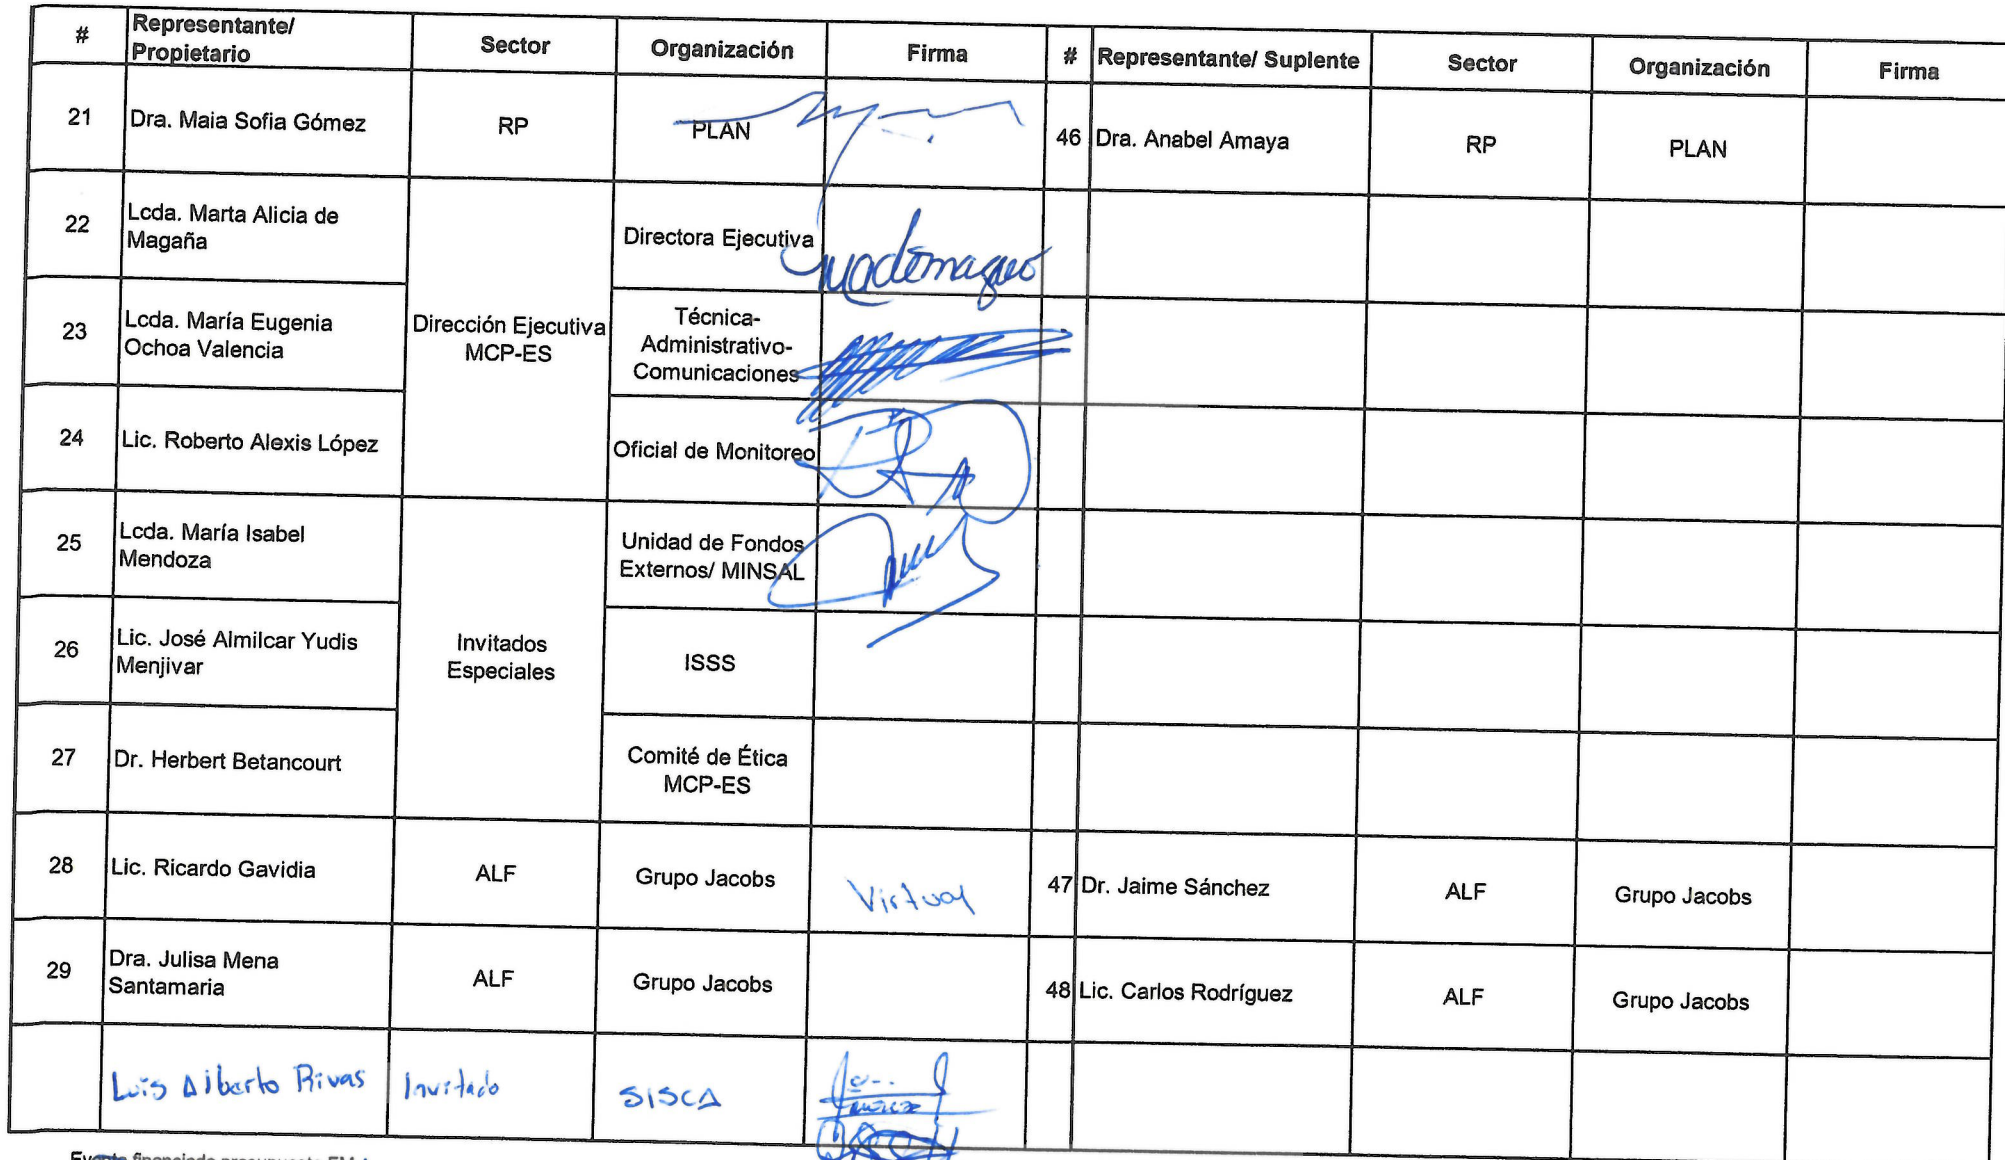 # Representante/ Propietario Sector Organización Firma # Representante/ Suplente Sector Organización Firma
21 Dra. Maia Sofia Gómez RP PLAN 46 Dra. Anabel Amaya RP PLAN
22 Lcda. Marta Alicia de Magaña Directora Ejecutiva
23 Lcda. María Eugenia Ochoa Valencia Dirección Ejecutiva MCP-ES Técnica-Administrativo-Comunicaciones
24 Lic. Roberto Alexis López Oficial de Monitoreo
25 Lcda. María Isabel Mendoza Unidad de Fondos Externos/ MINSAL
26 Lic. José Almilcar Yudis Menjivar Invitados Especiales ISSS
27 Dr. Herbert Betancourt Comité de Ética MCP-ES
28 Lic. Ricardo Gavidia ALF Grupo Jacobs Virtual 47 Dr. Jaime Sánchez ALF Grupo Jacobs
29 Dra. Julisa Mena Santamaria ALF Grupo Jacobs 48 Lic. Carlos Rodríguez ALF Grupo Jacobs
Luis Alberto Rivas Invitado SISCA